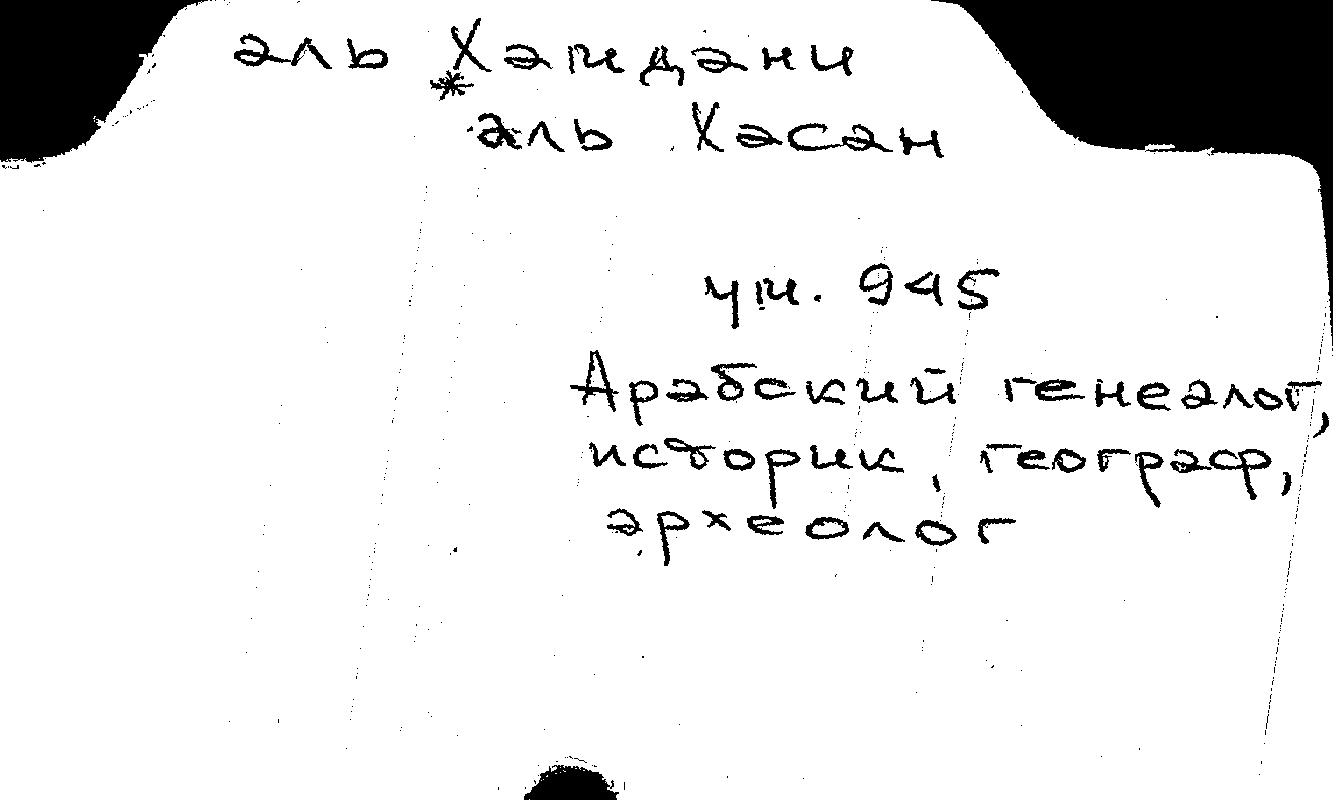 аль Хамдани
* аль Хасан
ум. 945
Арабский генеалог,
историк, географ,
археолог